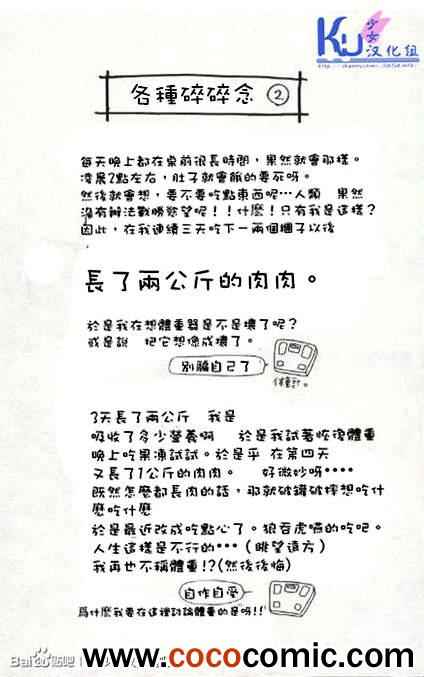 KU少女汉化组
各種碎碎念 ②
每天晚上都在桌前很長時間，果然就會那樣。
凌晨2點左右，肚子就會餓的要死呀。
然後就會想，要不要吃點東西呢…人類　果然
沒有辦法戰勝慾望呢！！什麼！只有我是這樣？
因此，在我連續三天吃下一兩個糰子以後
長了兩公斤的肉肉。
於是我在想體重器是不是壞了呢？
或是說　把它想像成壞了。
別騙自己了
体重計。
3天長了兩公斤　我是
吸收了多少營養啊　於是我試著恢復體重
晚上吃果凍試試。於是乎 在第四天
又長了1公斤的肉肉。　好微妙呀・・・・
既然怎麼都長肉的話，那就破罐破摔想吃什
麼吃什麼
於是最近改成吃點心了。狼吞虎嚥的吃吧。
人生這樣是不行的・・・（眺望遠方）
我再也不稱體重!?(然後後悔)
自作自受
爲什麼我要在這裡討論體重的是呀!!
Bai du 贴吧
www.cococomic.com